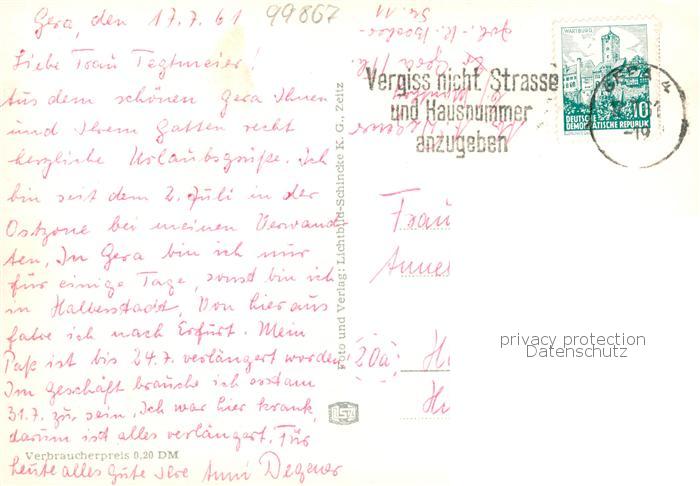 Gera, den 17.7.61
99867
Liebe Frau Tegtmeier!
Aus dem schönen Gera Ihnen
und Ihrem Gatten recht
herzliche Urlaubsgrüße. Ich
bin seit dem 2. Juli in der
Ostzone bei meinen Verwand
ten. In Gera bin ich nur
für einige Tage, sonst bin ich
in Halberstadt. Von hier aus
fahre ich nach Erfurt. Mein
Paß ist bis 24.7. verlängert worden
Im Geschäft brauche ich erst am
31.7. zu sein. Ich war hier krank,
darum ist alles verlängert. Für
heute alles Gute Ihre Anni Degner
Verbraucherpreis 0,20 DM
Foto und Verlag: Lichtbild-Schincke K. G., Zeitz
Vergiss nicht Strasse
und Hausnummer
anzugeben
WARTBURG
10
DEUTSCHE
DEMOKRATISCHE REPUBLIK
GERA
-19
Gera
Frau
Annes
20a
privacy protection
Datenschutz